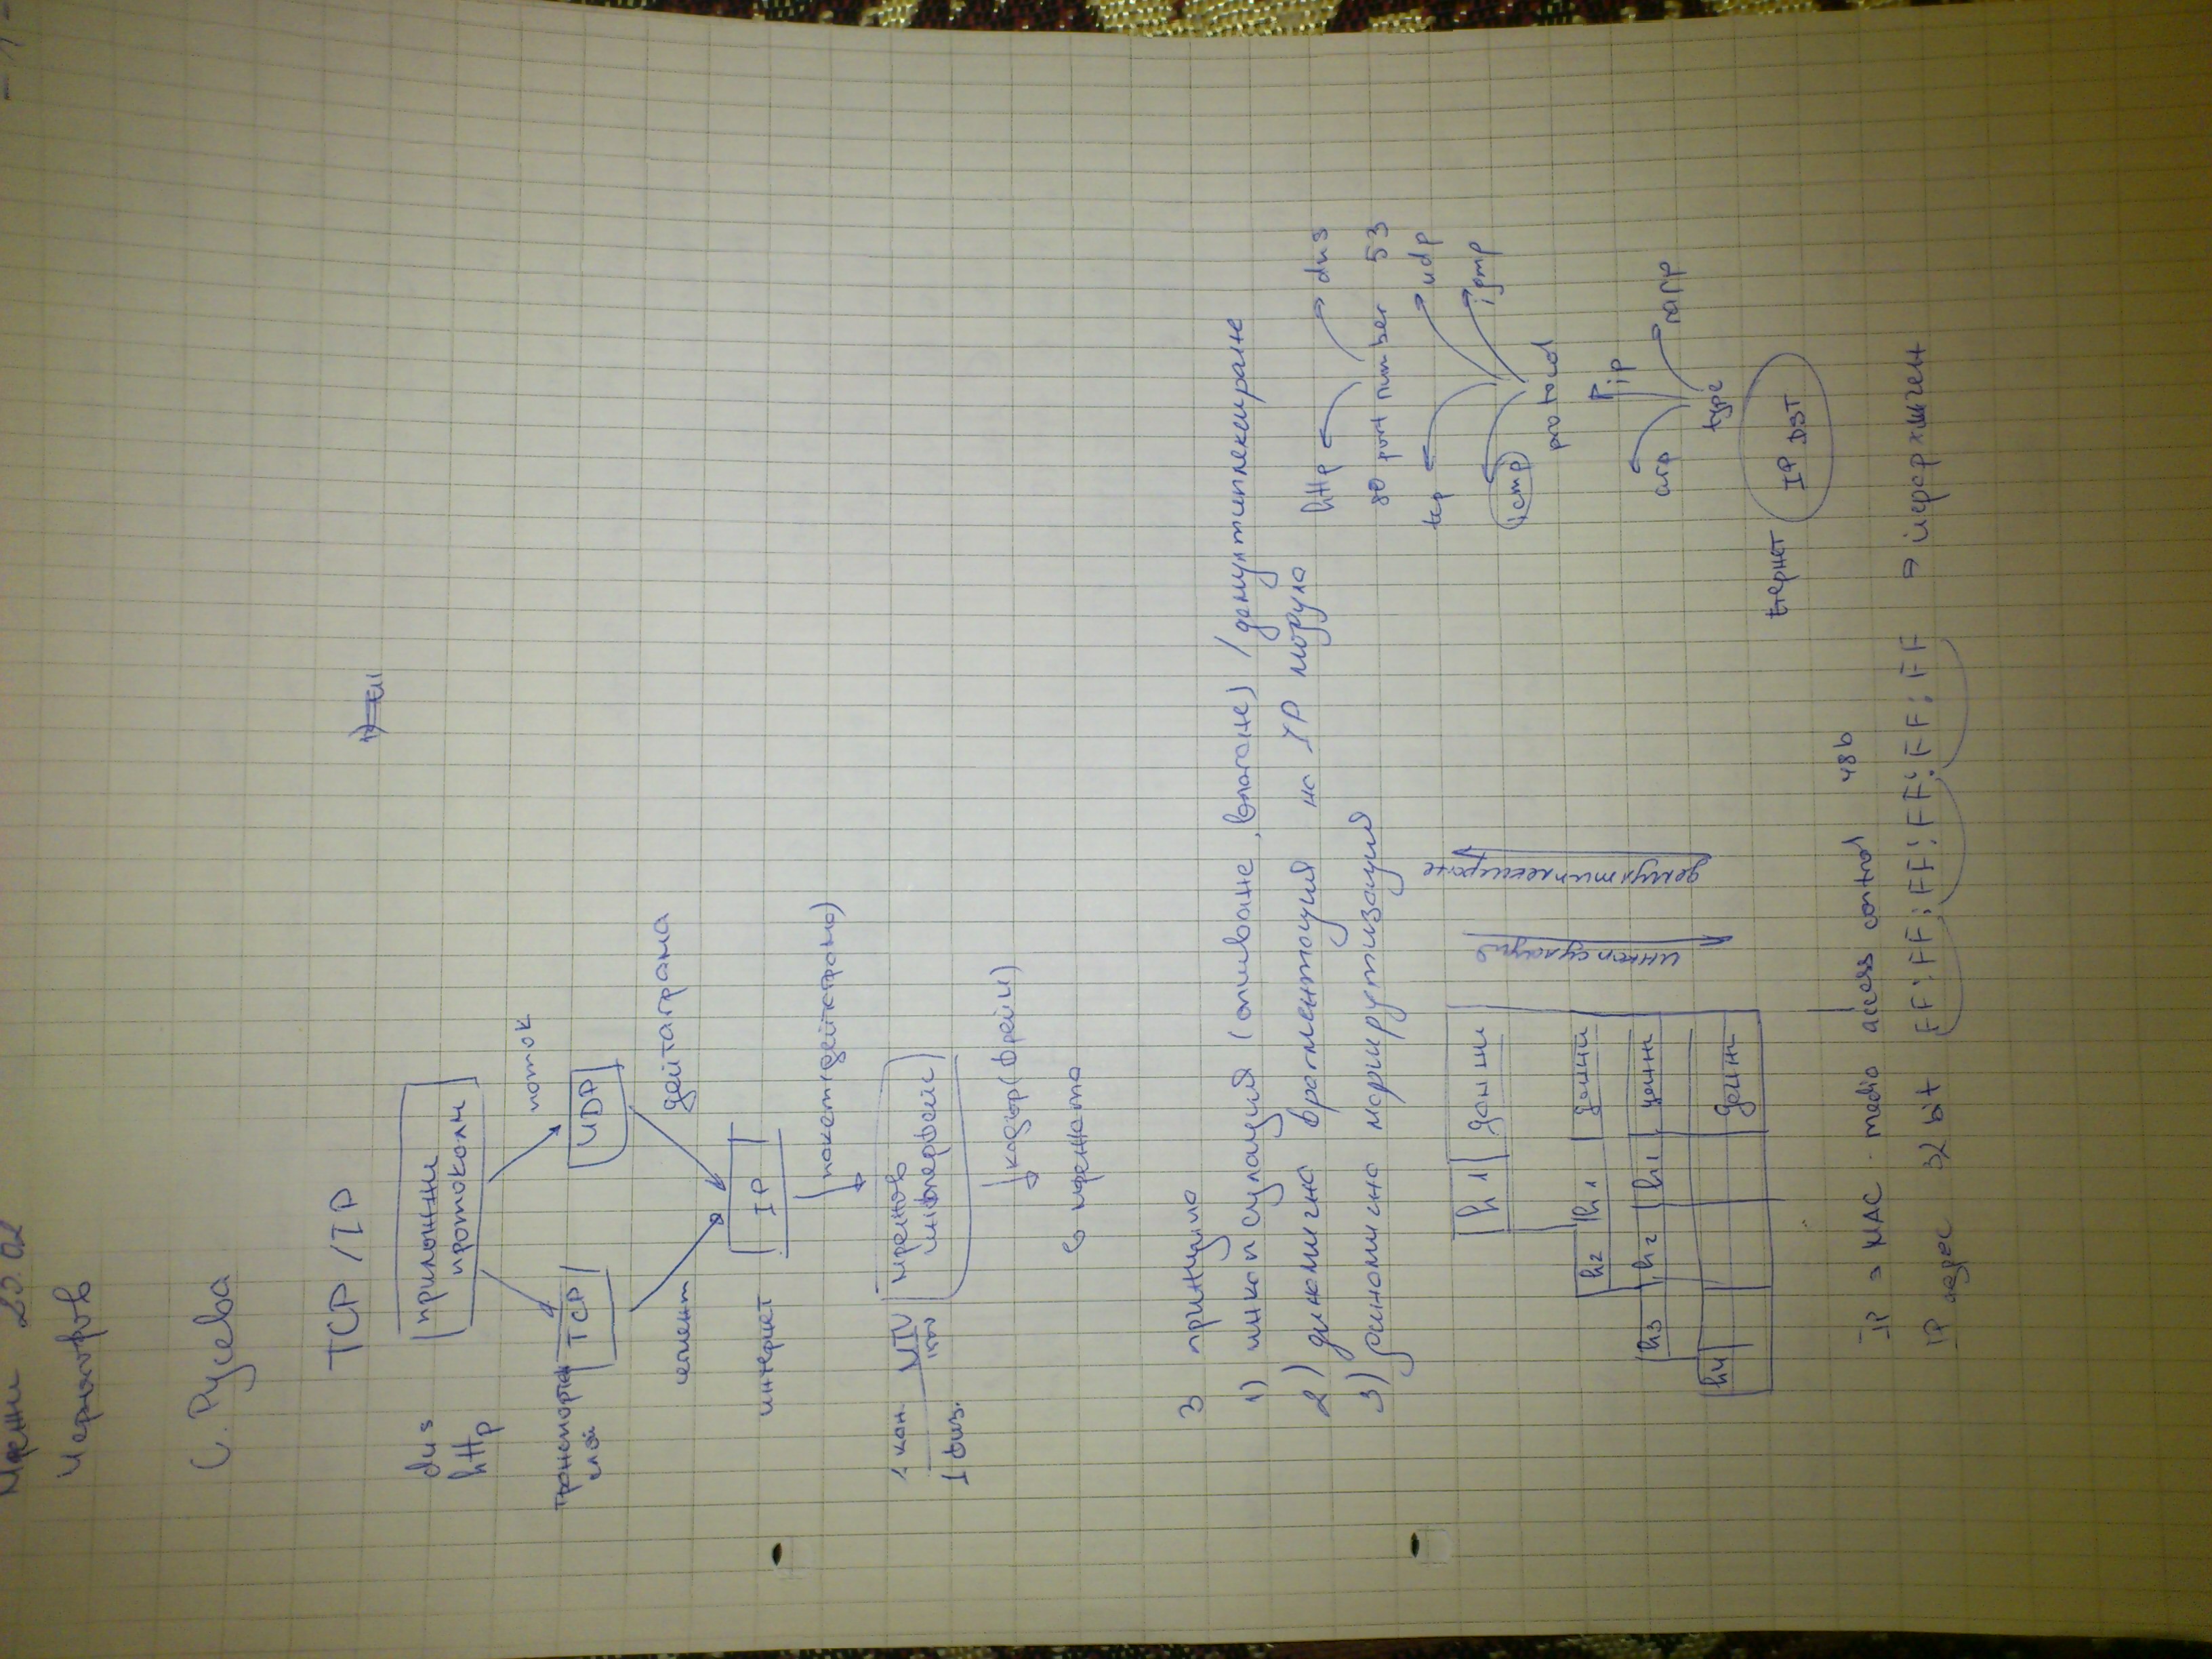 Мрежи 25.02
С. Русева
TCP/IP
dns
http
приложни
протоколи
поток
транспортен
слой
TCP
UDP
сегмент
дейтаграма
интернет
IP
пакет(дейтаграма)
1 кан.
1 физ.
MTU
мрежов
интерфейс
кадър(фрейм)
мрежата
3 принципа
1) инкапсулация (опиване, влагане) / демултиплексиране
2) динамична фрагментация на IP модула
3) динамична маршрутизация
h1 данни
h2 h1 данни
h3 h2 h1 данни
h4 данни
инкапсулация
демултиплексиране
http dns
80 port number 53
tcp udp
icmp igmp
protocol
arp ip rarp
type
етернет IP DST
IP MAC - media access control 48b
IP адрес 32 bit FF:FF:FF:FF:FF:FF йерархичен